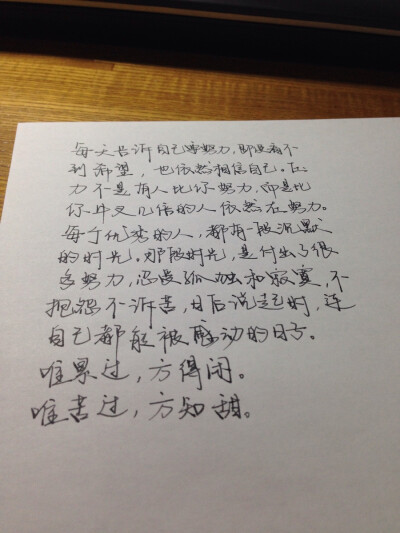 每天告诉自己要努力，即使看不
到希望，也依然相信自己。压
力不是有人比你努力，而是比
你牛叉几倍的人依然在努力。
每个优秀的人，都有一段沉默
的时光。那段时光，是付出了很
多努力，忍受孤独和寂寞，不
抱怨不诉苦，日后说起时，连
自己都能被感动的日子。
唯累过，方得闲。
唯苦过，方知甜。